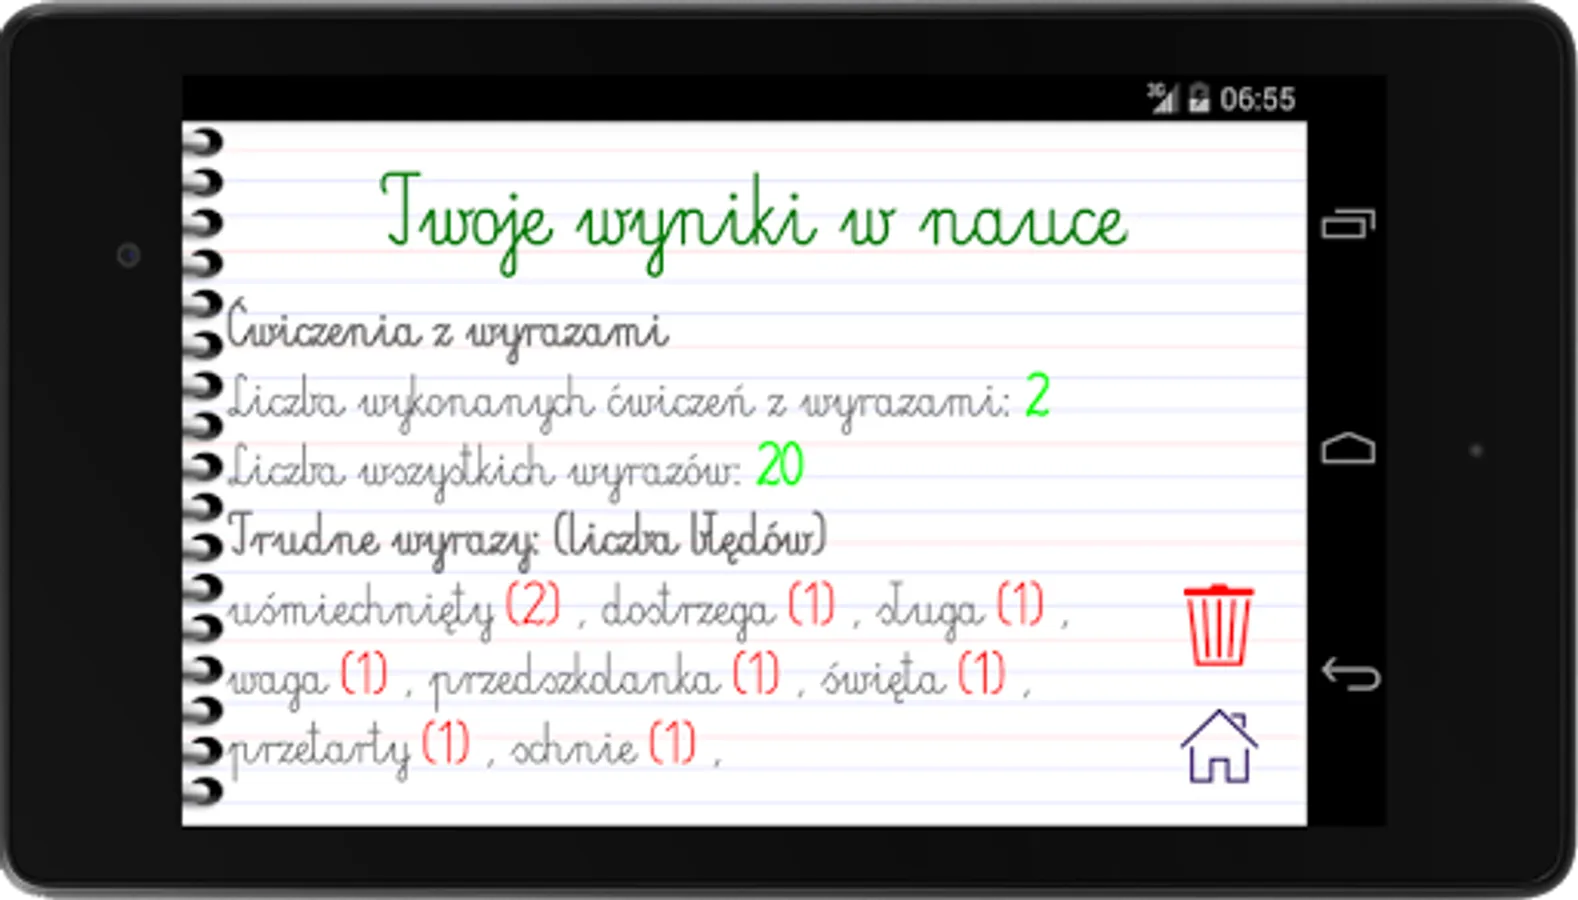 3G 06:55
Twoje wyniki w nauce
Ćwiczenia z wyrazami
Liczba wykonanych ćwiczeń z wyrazami: 2
Liczba wszystkich wyrazów: 20
Trudne wyrazy: (liczba błędów)
uśmiechnięty (2) , dostrzega (1) , sługa (1) ,
waga (1) , przedszkolanka (1) , święta (1) ,
przetarty (1) , schnie (1) ,